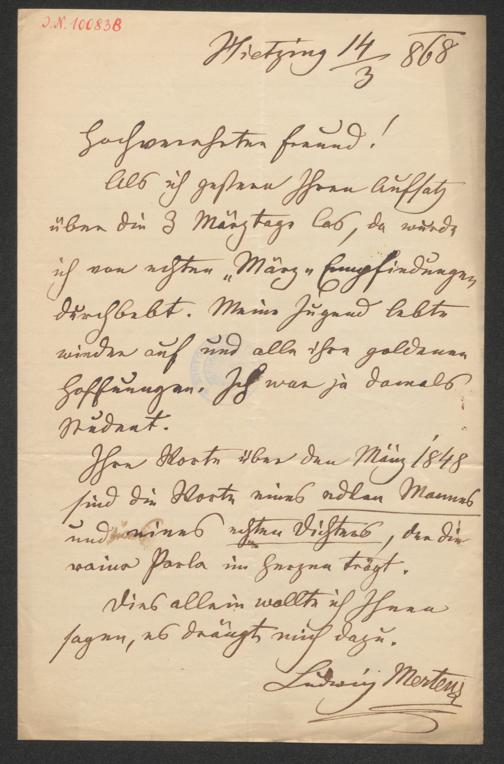 J.N. 10083B
Hietzing 14/3 868
Hochverehrter Freund!
Als ich gestern Ihren Aufsatz
über die 3 Märztage las, da wurde
ich von echten „März" Empfindungen
durchbebt. Meine Jugend lebte
wieder auf und alle ihre goldenen
Hoffnungen. Ich war ja damals
Student.
Ihre Worte über den März 1848
sind die Worte eines edlen Mannes
und eines echten Dichters, der die
reine Perle im Herzen trägt.
Dies allein wollte ich Ihnen
sagen, es drängte mich dazu.
Ludwig Mertens